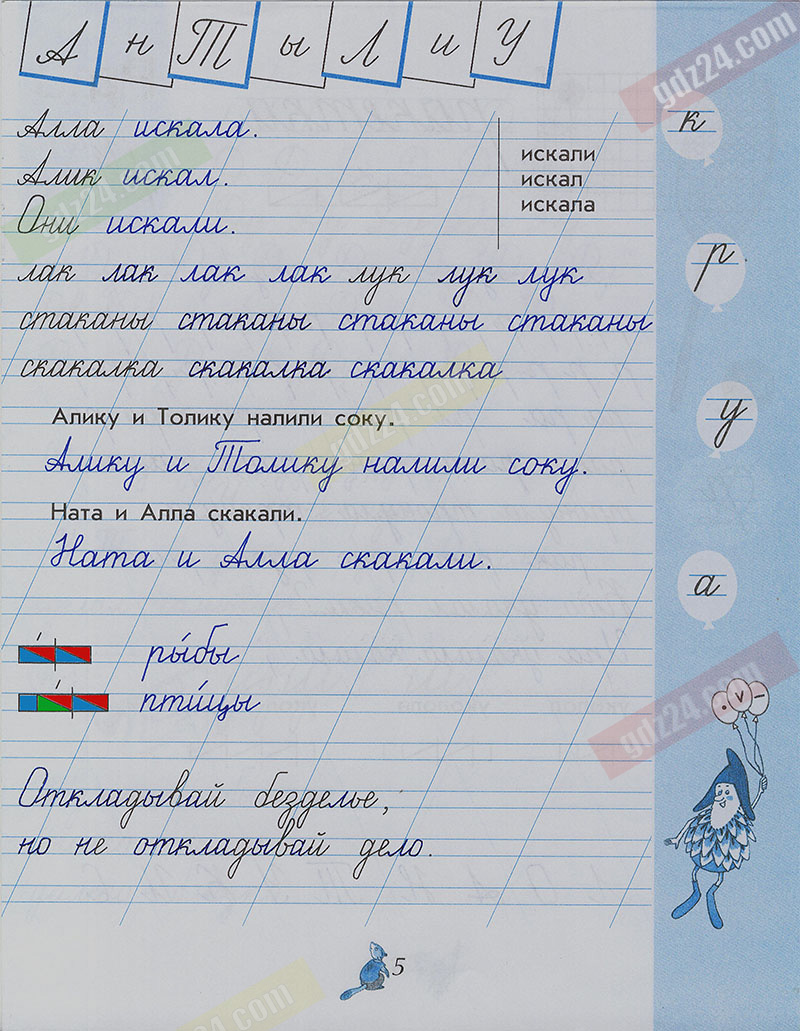 А н Т ы Л и У
Алла искала.
Алик искал.
Они искали.
искали
искал
искала
лак лак лак лак лук лук лук
стаканы стаканы стаканы стаканы
скакалка скакалка скакалка
Алику и Толику налили соку.
Алику и Толику налили соку.
Ната и Алла скакали.
Ната и Алла скакали.
ры́бы
пти́цы
Откладывай безделье,
но не откладывай дело.
к
р
у
а
. v –
5
gdz24.com
gdz24.com
gdz24.com
gdz24.com
gdz24.com